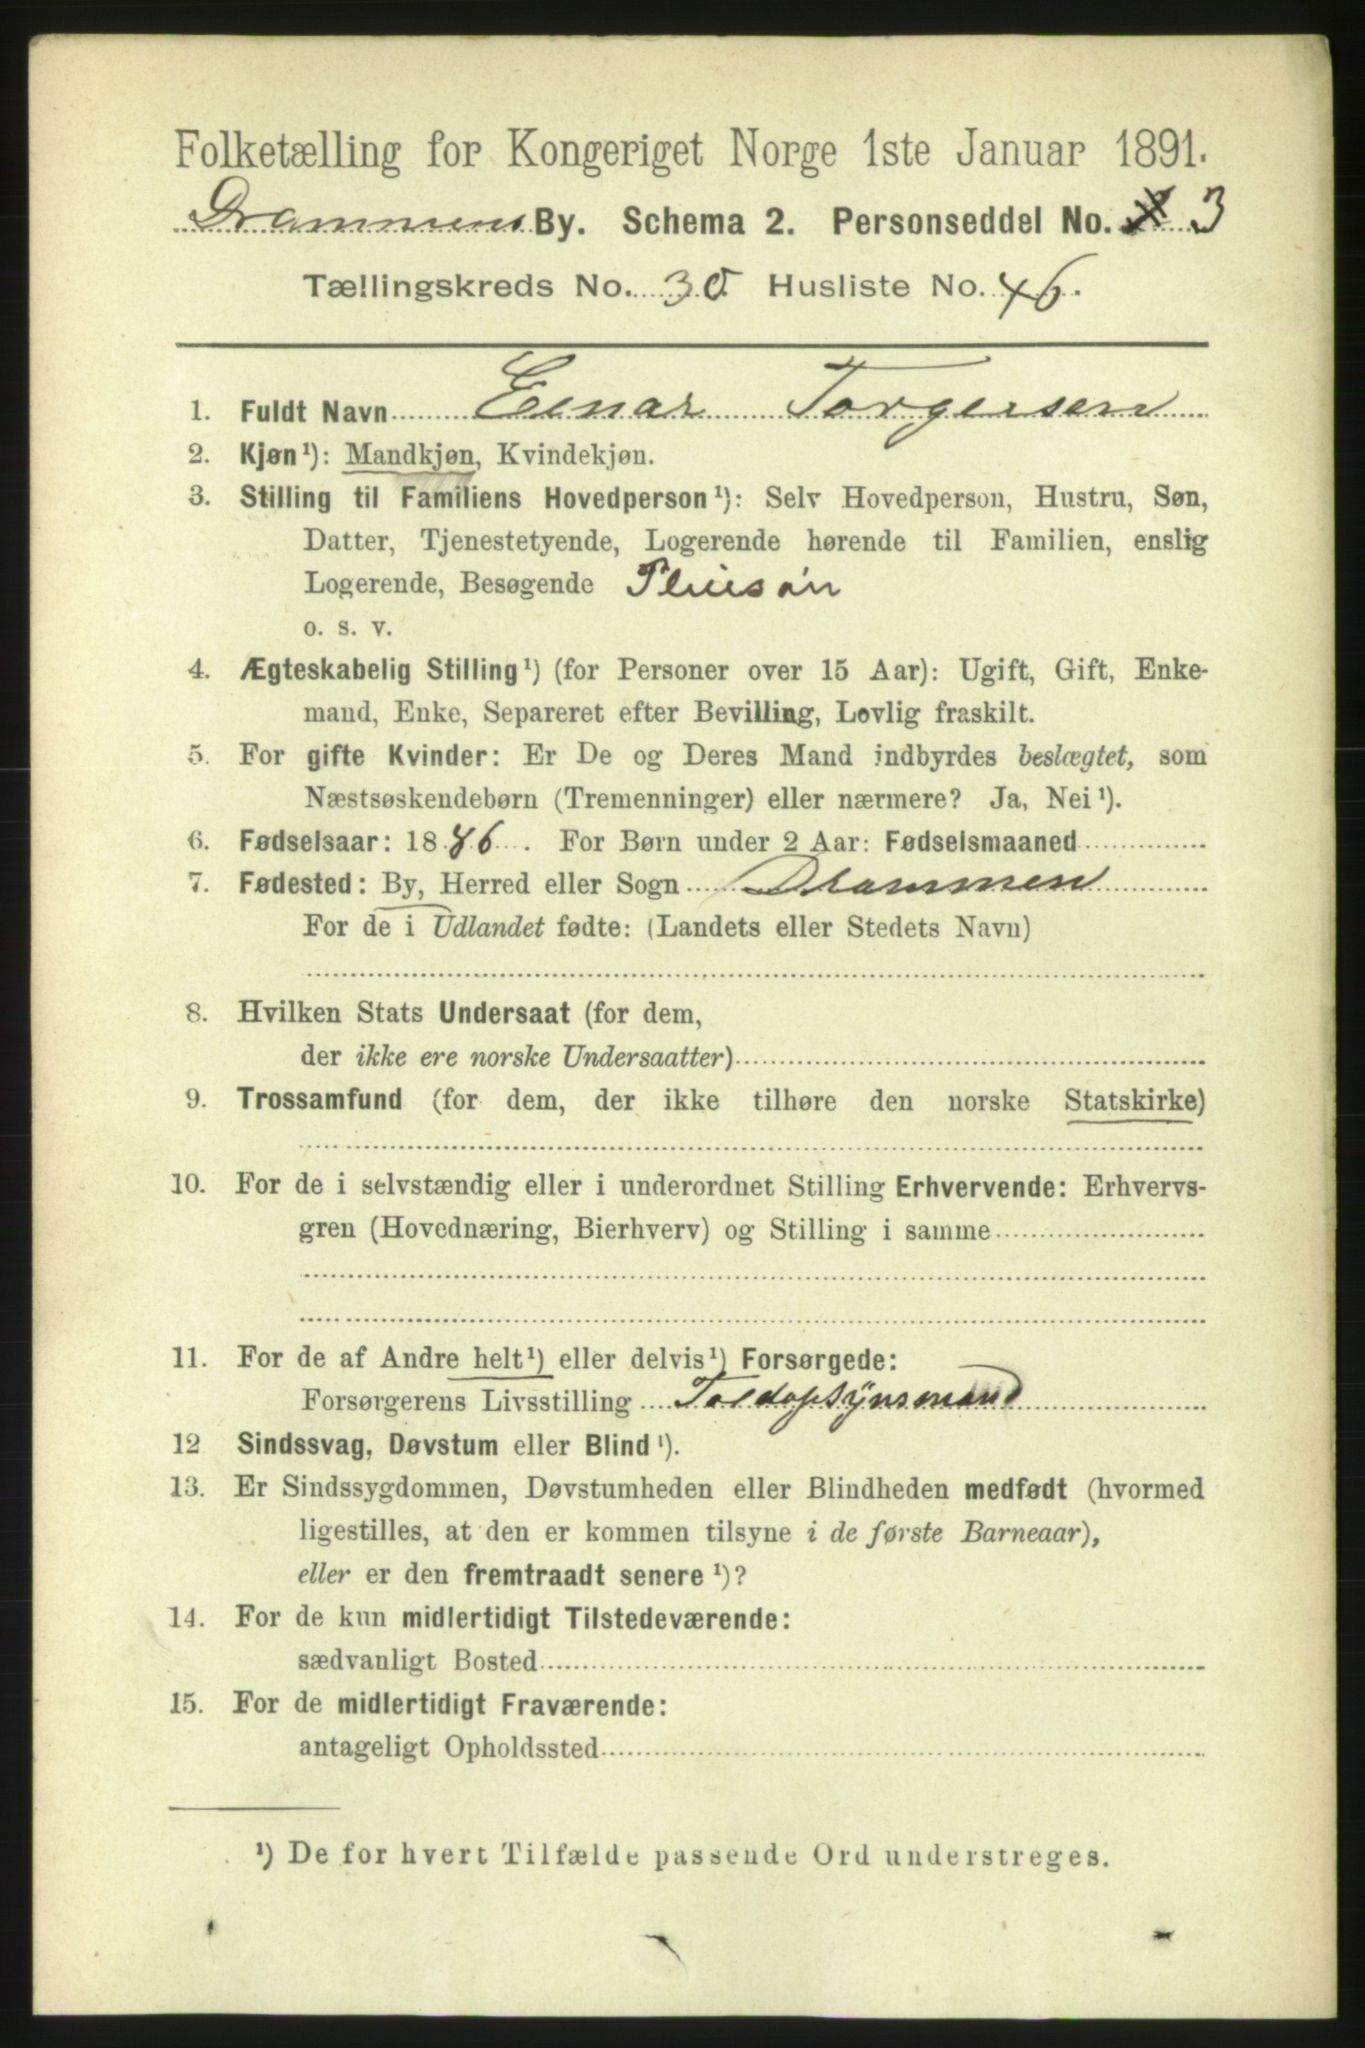 Folketælling for Kongeriget Norge 1ste Januar 1891.
Drammens By. Schema 2. Personseddel No. 3
Tællingskreds No. 30 Husliste No. 46.
1. Fuldt Navn Einar Torgersen
2. Kjøn¹): Mandkjøn, Kvindekjøn.
3. Stilling til Familiens Hovedperson¹): Selv Hovedperson, Hustru, Søn,
Datter, Tjenestetyende, Logerende hørende til Familien, enslig
Logerende, Besøgende Pleiesøn
o. s. v.
4. Ægteskabelig Stilling¹) (for Personer over 15 Aar): Ugift, Gift, Enke-
mand, Enke, Separeret efter Bevilling, Lovlig fraskilt.
5. For gifte Kvinder: Er De og Deres Mand indbyrdes beslægtet, som
Næstsøskendebørn (Tremenninger) eller nærmere? Ja, Nei¹).
6. Fødselsaar: 18 . For Børn under 2 Aar: Fødselsmaaned
7. Fødested: By, Herred eller Sogn Drammen
For de i Udlandet fødte: (Landets eller Stedets Navn)
8. Hvilken Stats Undersaat (for dem,
der ikke ere norske Undersaatter)
9. Trossamfund (for dem, der ikke tilhøre den norske Statskirke)
10. For de i selvstændig eller i underordnet Stilling Erhvervende: Erhvervs-
gren (Hovednæring, Bierhverv) og Stilling i samme
11. For de af Andre helt¹) eller delvis¹) Forsørgede:
Forsørgerens Livsstilling Toldopsÿnsmand
12 Sindssvag, Døvstum eller Blind¹).
13. Er Sindssygdommen, Døvstumheden eller Blindheden medfødt (hvormed
ligestilles, at den er kommen tilsyne i de første Barneaar),
eller er den fremtraadt senere¹)?
14. For de kun midlertidigt Tilstedeværende:
sædvanligt Bosted
15. For de midlertidigt Fraværende:
antageligt Opholdssted
¹) De for hvert Tilfælde passende Ord understreges.